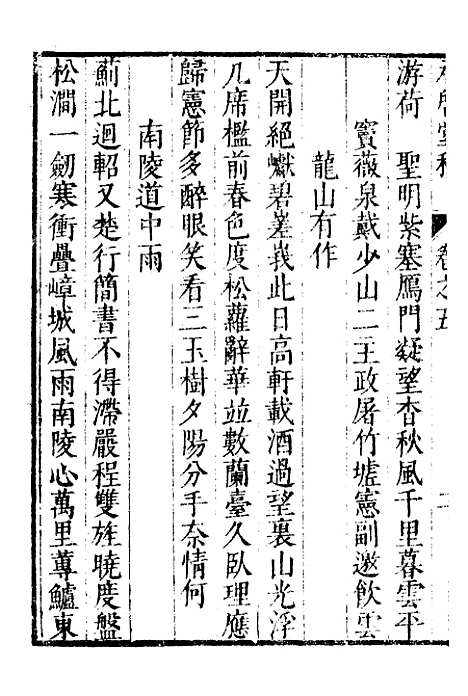 卷之五
二
游荷　聖明紫塞鴈門凝望杳秋風千里暮雲平
竇薇泉戴少山二王政屠竹墟憲副邀飲雲
龍山有作
天開絕巘碧嵳峩此日高軒載酒過望裏山光浮
几席檻前春色度松蘿辭華並數蘭臺久臥理應
歸憲節多醉眼笑看三玉樹夕陽分手奈情何
南陵道中雨
薊北迴軺又楚行簡書不得滯嚴程雙旌曉度盤
松澗一劒寒衝疊嶂城風雨南陵心萬里蓴鱸東